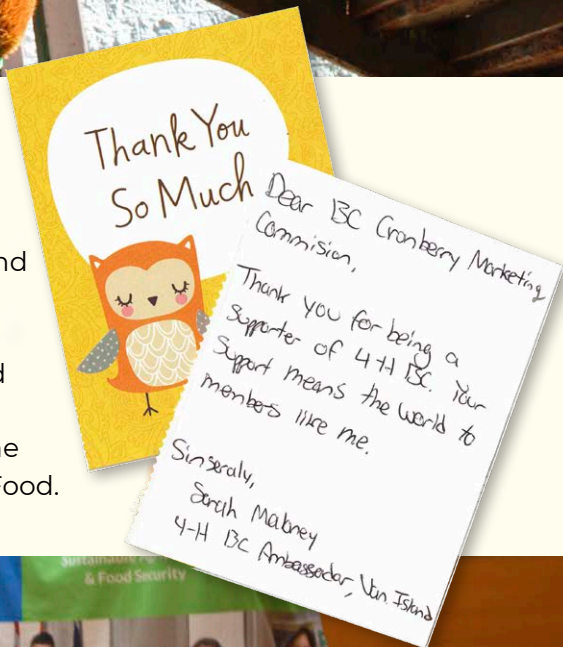 Thank You
So Much
nd
d
e
Food.
Dear BC Cranberry Marketing
Commision,
Thank you for being a
Supporter of 4-H BC. Your
Support means the world to
members like me.
Sinseraly,
Sarah
4-H BC Ambassador, Van Island
& Food Security